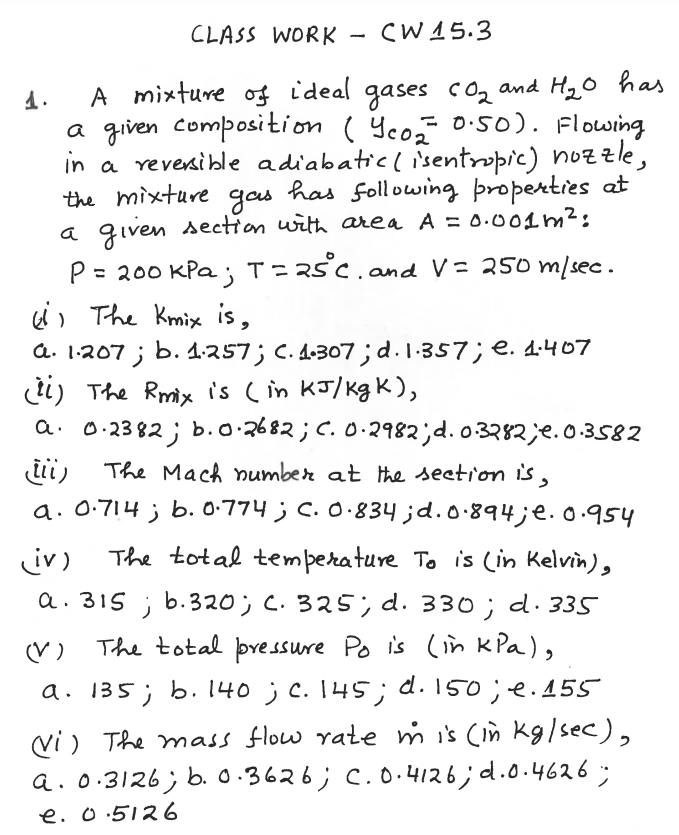 CLASS WORK - CW 15.3
1. A mixture of ideal gases CO₂ and H₂O has
a given composition ( yco₂ = 0.50). Flowing
in a reversible adiabatic ( isentropic) nozzle,
the mixture gas has following properties at
a given section with area A = 0.001m²:
P = 200 KPa ; T = 25°C. and V = 250 m/sec.
(i) The Kmix is,
a. 1.207 ; b. 1.257 ; c. 1.307 ; d. 1.357 ; e. 1.407
(ii) The Rmix is ( in KJ/kg K),
a. 0.2382 ; b. 0.2682 ; c. 0.2982 ; d. 0.3282 ; e. 0.3582
(iii) The Mach number at the section is,
a. 0.714 ; b. 0.774 ; c. 0.834 ; d. 0.894 ; e. 0.954
(iv) The total temperature To is (in Kelvin),
a. 315 ; b. 320 ; c. 325 ; d. 330 ; d. 335
(v) The total pressure Po is (in kPa),
a. 135 ; b. 140 ; c. 145 ; d. 150 ; e. 155
(vi) The mass flow rate ṁ is (in kg/sec),
a. 0.3126 ; b. 0.3626 ; c. 0.4126 ; d. 0.4626 ;
e. 0.5126